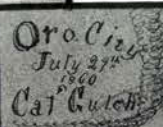 Oro. City
July 29th
1860
Cal Gulch